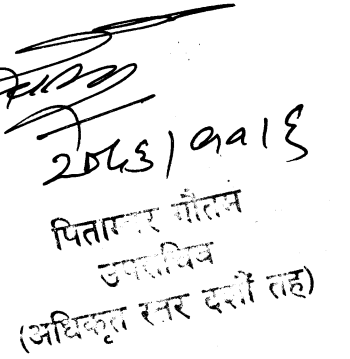 २०८१|११|६
पिताम्बर गौतम
उपसचिव
(अधिकृत स्तर दशौं तह)